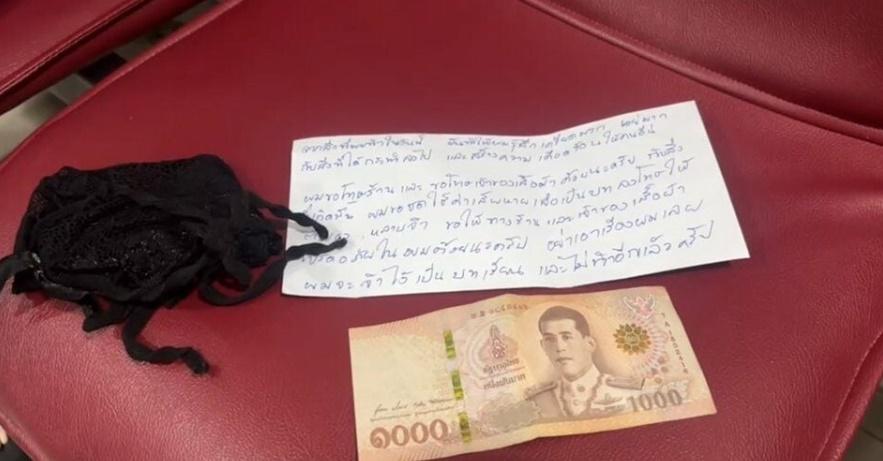 จากสิ่งที่ผมทำในวันนี้ มันทำให้ผมรู้สึก เครียดมาก แย่มาก
กับสิ่งที่ได้กระทำลงไป และสร้างความเดือดร้อนให้คนอื่น
ผมขอโทษร้าน และ ขอโทษเจ้าของเสื้อผ้า ด้วยนะครับ กับสิ่ง
ที่เกิดขึ้น ผมขอชดใช้ค่าเสียหาย เพื่อเป็นบทลงโทษให้
หลาบจำ ขอให้ทางร้าน และเจ้าของเสื้อผ้า
ผมด้วยนะครับ อย่าเอาเรื่องผมเลย
ผมจะจำไว้เป็นบทเรียน และไม่ทำอีกแล้วครับ
รัฐบาลไทย
หนึ่งพันบาท
๑๐๐๐
1000